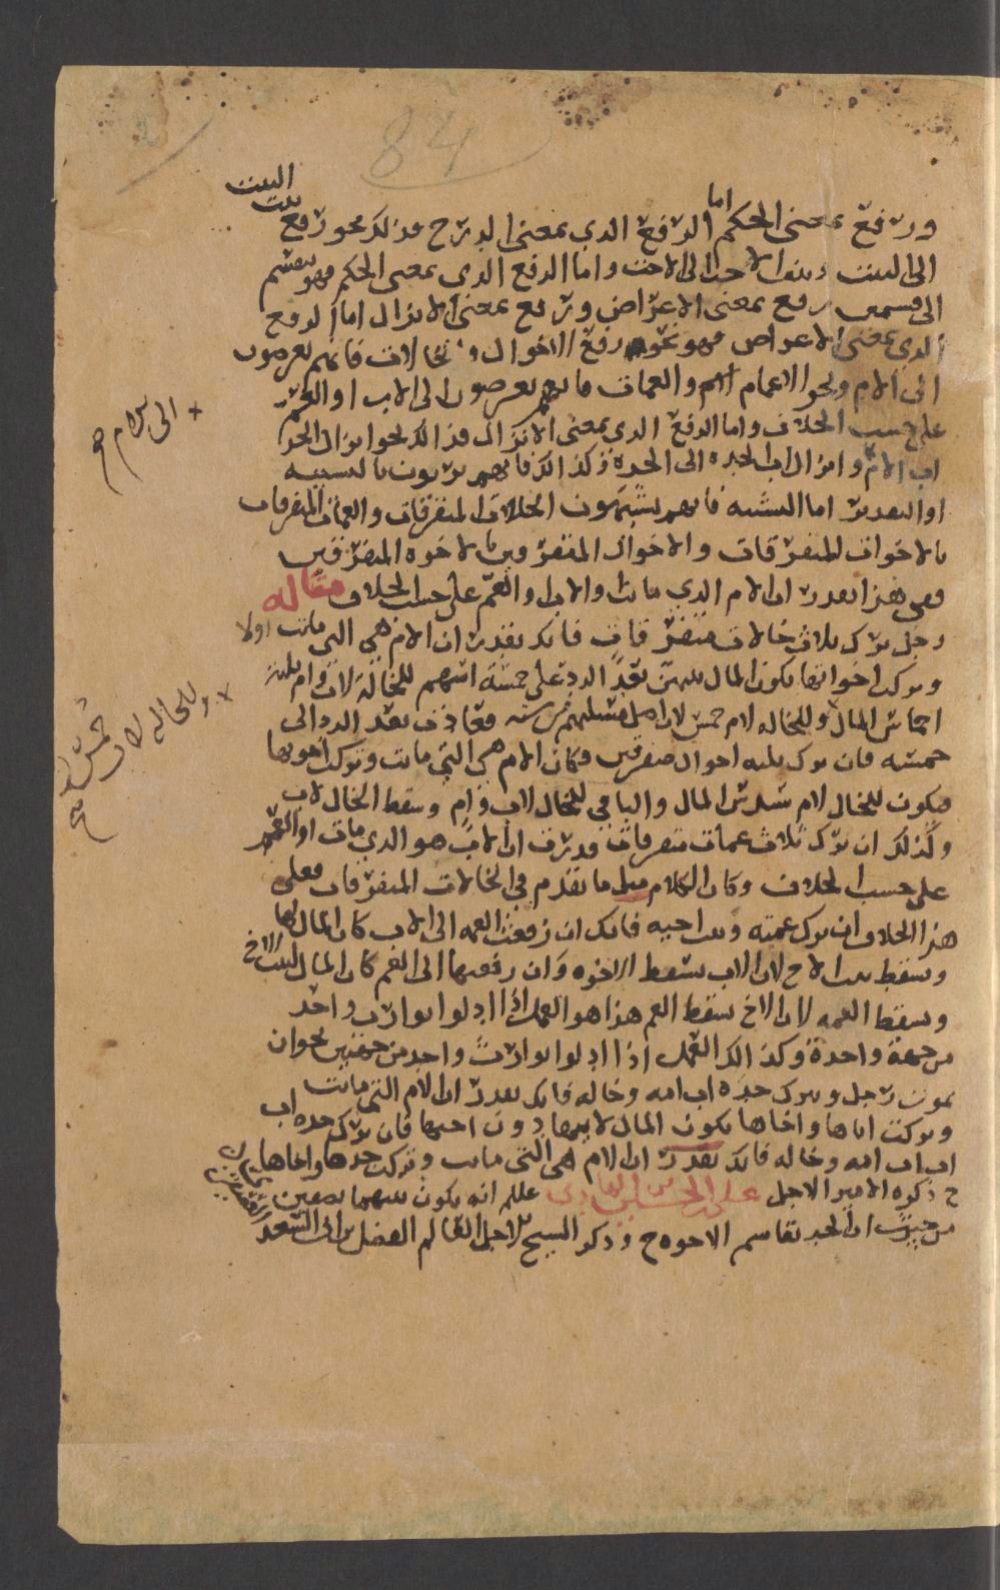 84
البنت
ورفع بمعنى الحكم اما الرفع الذي بمعنى الدرج فذلك نحو رفع بنت
الى البنت وبنت الاخت الى الاخت واما الرفع الذي بمعنى الحكم فهو ينقسم
الى قسمين رفع بمعنى الاعراض ورفع بمعنى الانزال اما الرفع
الذي بمعنى الاعراض فهو نحو رفع الاخوال والخالات فانهم يعرضون
الى الام ونحو الاعمام لام والعمات فانهم يعرضون الى الاب او العم
على حسب الخلاف واما الرفع الذي بمعنى الانزال فذلك نحو انزال الجد
اب الام وانزال اب الجدة الى الجدة وكذلك فانهم يرثون بالتشبيه
او التقدير اما التشبيه فانهم يشبهون الخالات المتفرقات والعمات المتفرقات
بالاخوات المتفرقات والاخوال المتفرقين بالاخوة المتفرقين
وفي هذا تقدر ان الام الذي ماتت والاب او العم على حسب الخلاف مثاله
رجل ترك ثلاث خالات متفرقات فانك تقدر ان الام هي التي ماتت اولا
وتركت اخواتها يكون المال بينهن بعد الرد على خمسة اسهم للخالة لاب وام ثلاثة
اخماس المال وللخالة لام خمس لان اصل مسئلتهم من ستة وعادت بعد الرد الى
خمسة فان ترك ثلاثة اخوال متفرقين وكان الام هي التي ماتت وتركت اخوتها
فيكون للخال لام سدس المال والباقي للخال لاب وام وسقط الخال لاب
وكذلك ان ترك ثلاث عمات متفرقات قدرت ان الاب هو الذي مات او العم
على حسب الخلاف وكان الكلام مثل ما تقدم في الخالات المتفرقات فعلى
هذا الخلاف ان ترك عمته وبنت اخيه فانك ان رفعت العمة الى الاب كان المال لها
وسقط بنت الاخ لان الاب يسقط الاخوة وان رفعتها الى العم كان المال لبنت الاخ
وسقط العمة لان الاخ يسقط العم هذا هو العمل اذا ادلوا بوارث واحد
من جهة واحدة وكذلك العمل اذا ادلوا بوارث واحد من جهتين نحو ان
يموت رجل وترك جده اب امه وخاله فانك تقدر ان الام التي ماتت
وتركت اباها واخاها يكون المال لابيها دون اخيها فان ترك جده اب
اب امه وخاله فانك تقدر ان الام هي التي ماتت وتركت جدها واخاها
ح ذكره الامير الاجل علي بن الحسين الهادي علم انه يكون بينهما نصفين
من حيث ان الجد تقاسم الاخوة ح وذكر الشيخ الاجل العالم الفضل بن ابي السعد
+ الى
× وللخالة لاب
خمس